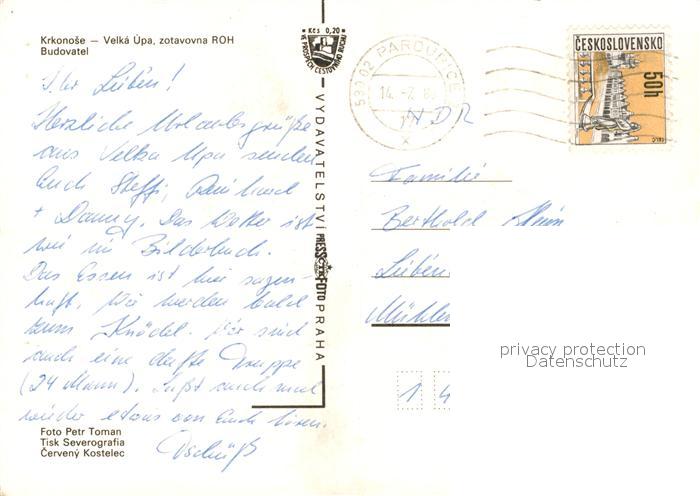 Krkonoše — Velká Úpa, zotavovna ROH
Budovatel
Kčs 0,20
VE PROSPĚCH CESTOVNÍHO RUCHU
Ihr Lieben!
Herzliche Urlaubsgrüße
aus Velka Upa senden
Euch Steffi, Reinhard
+ Danny. Das Wetter ist
wie im Bilderbuch.
Das Essen ist hier sagen-
haft. Wir werden bald
zum Knödel. Wir sind
auch eine dufte Truppe
(24 Mann). Laßt auch mal
wieder etwas von Euch hören.
Tschüß
Foto Petr Toman
Tisk Severografia
Červený Kostelec
VYDAVATELSTVÍ PRESSFOTO PRAHA
ČTK
530 02 PARDUBICE
14. -7. 8
DDR
ČESKOSLOVENSKO
50h
Familie
Berthold
Lübben
Mühlen
privacy protection
Datenschutz
1 4